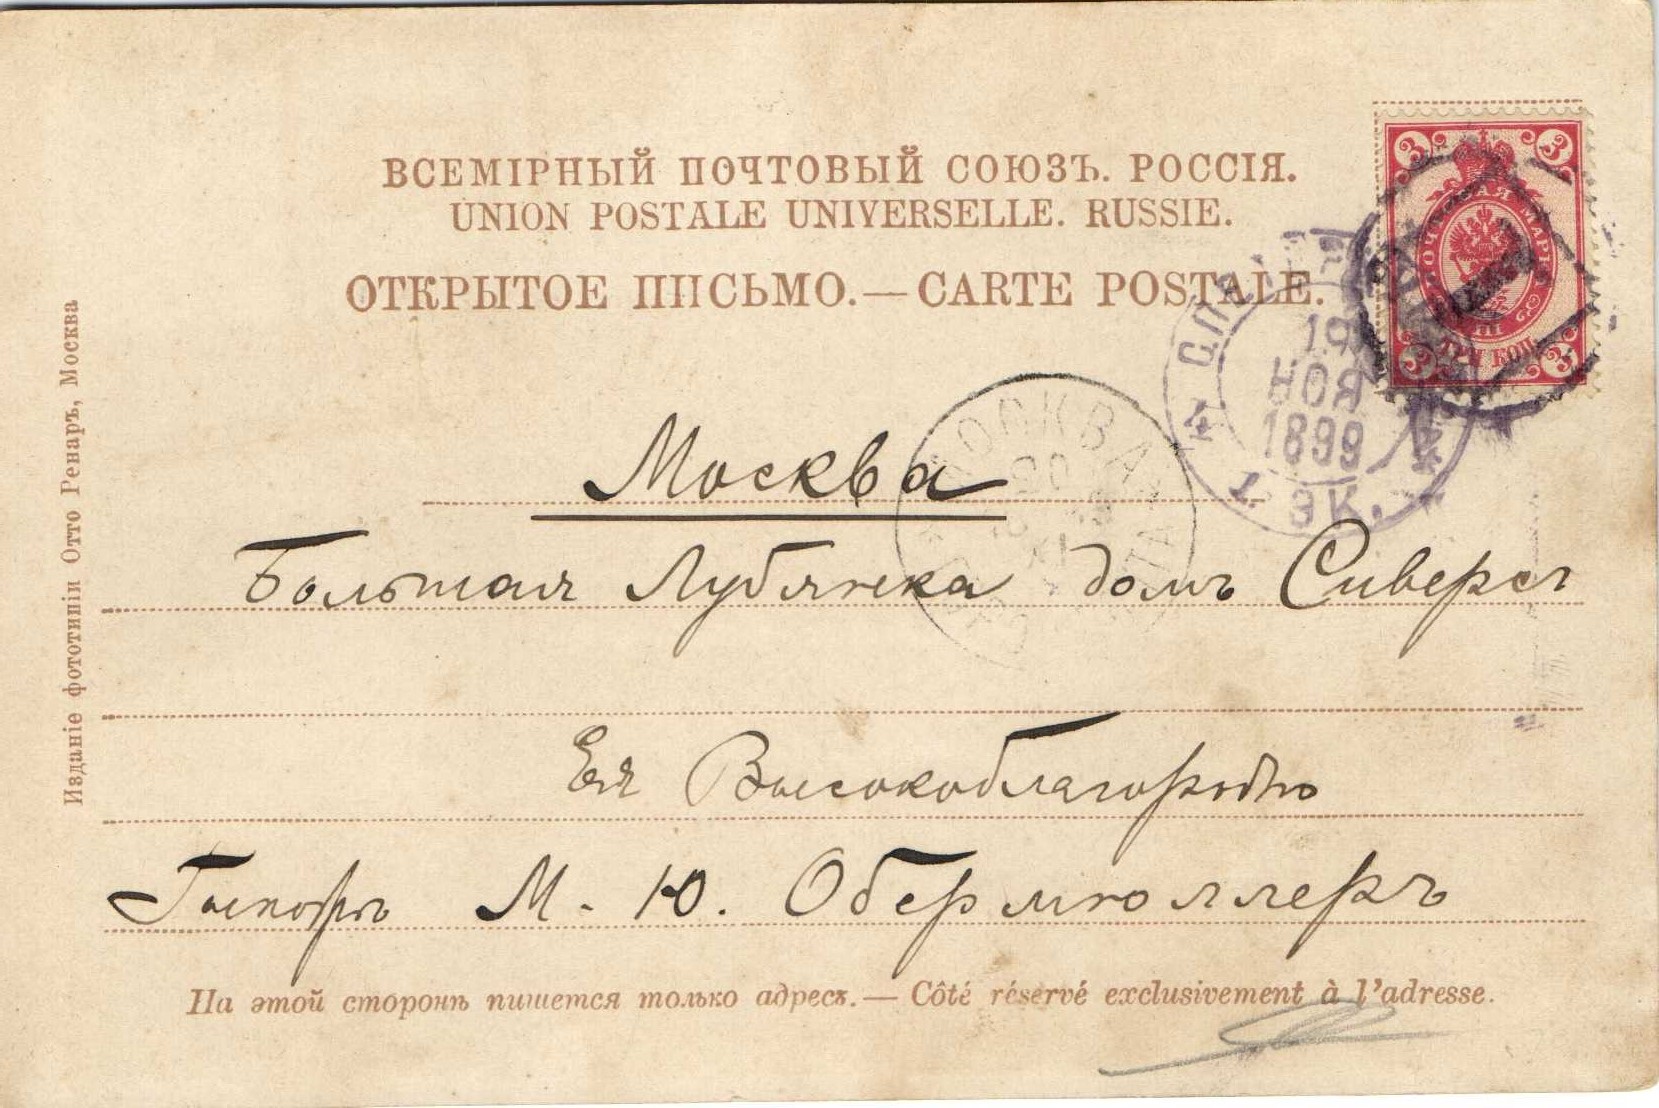 ВСЕМІРНЫЙ ПОЧТОВЫЙ СОЮЗЪ. РОССІЯ.
UNION POSTALE UNIVERSELLE. RUSSIE.
ОТКРЫТОЕ ПИСЬМО.—CARTE POSTALE.
3 3
МАРКА
ТРИ КОП.
3 3
19
НОЯ
1899
4 4
1 ЭК.
МОСКВА
Москва
Большая Лубянка домъ Сиверсъ
Ея Высокоблагородію
М. Ю. Обермюллеръ
На этой сторонѣ пишется только адресъ.— Côté réservé exclusivement à l'adresse.
Изданіе фототипіи Отто Ренаръ, Москва